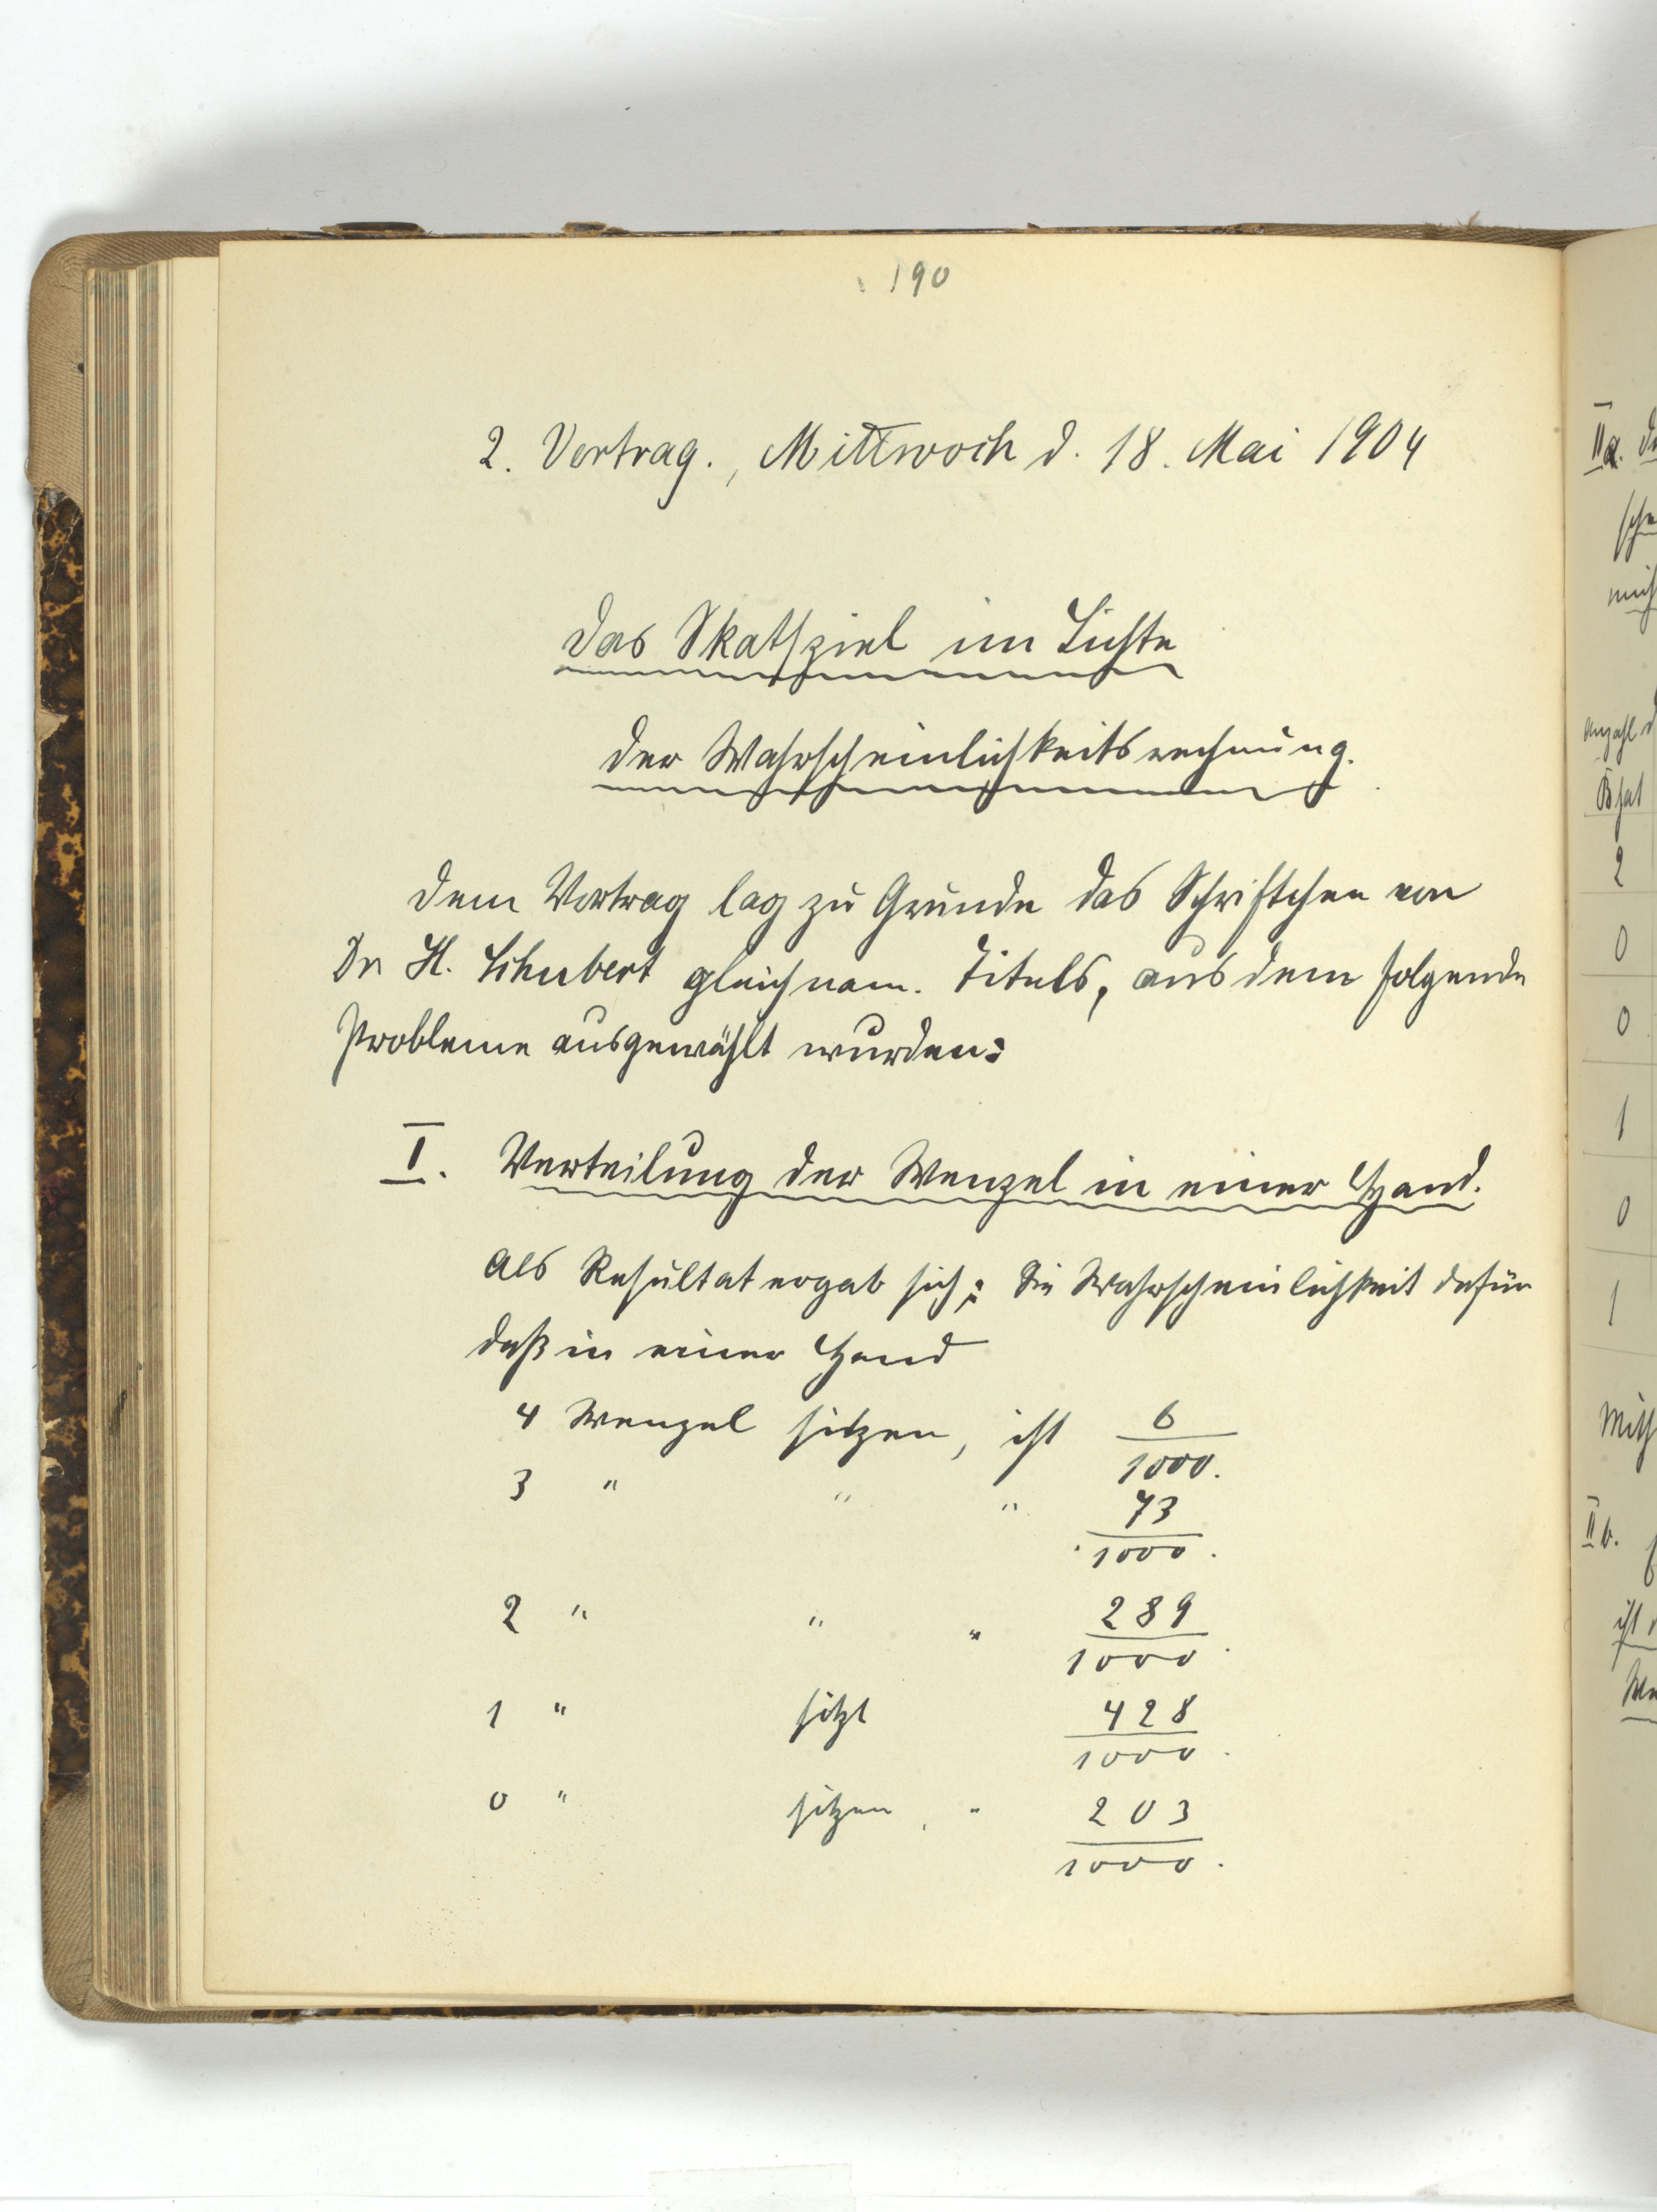 190
2. Vortrag., Mittwoch d. 18. Mai 1904
Das Skatspiel im Lichte
der Wahrscheinlichkeitsrechnung.
Dem Vortrag lag zu Grunde das Schriftchen von
Dr H. Schubert gleichnam. Titels, aus dem folgende
Probleme ausgewählt wurden:
I. Verteilung der Wenzel in einer Hand.
Als Resultat ergab sich: Die Wahrscheinlichkeit dafür
daß in einer Hand
4 Wenzel sitzen, ist 6
1000.
3 " " " 73
1000.
2 " " " 289
1000.
1 " sitzt 428
1000.
0 " sitzen, " 203
1000.
IIa.
Anzahl d
B hat
2
0
0
1
0
1
IIb.
ist